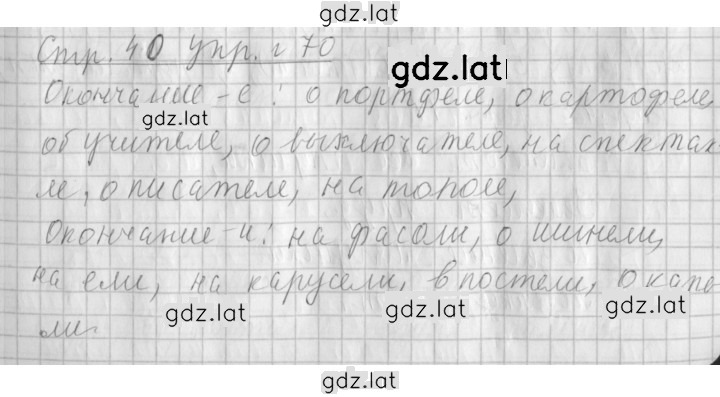 gdz.lat
Стр. 40 упр. 170
gdz.lat
Окончание -е: о портфеле, о картофеле,
gdz.lat
об учителе, о выключателе, на спектак-
ле, о писателе, на тополе,
Окончание -и: на фасоли, о шинели,
на ели, на карусели, в постели, о капе-
gdz.lat gdz.lat gdz.lat
ли.
gdz.lat